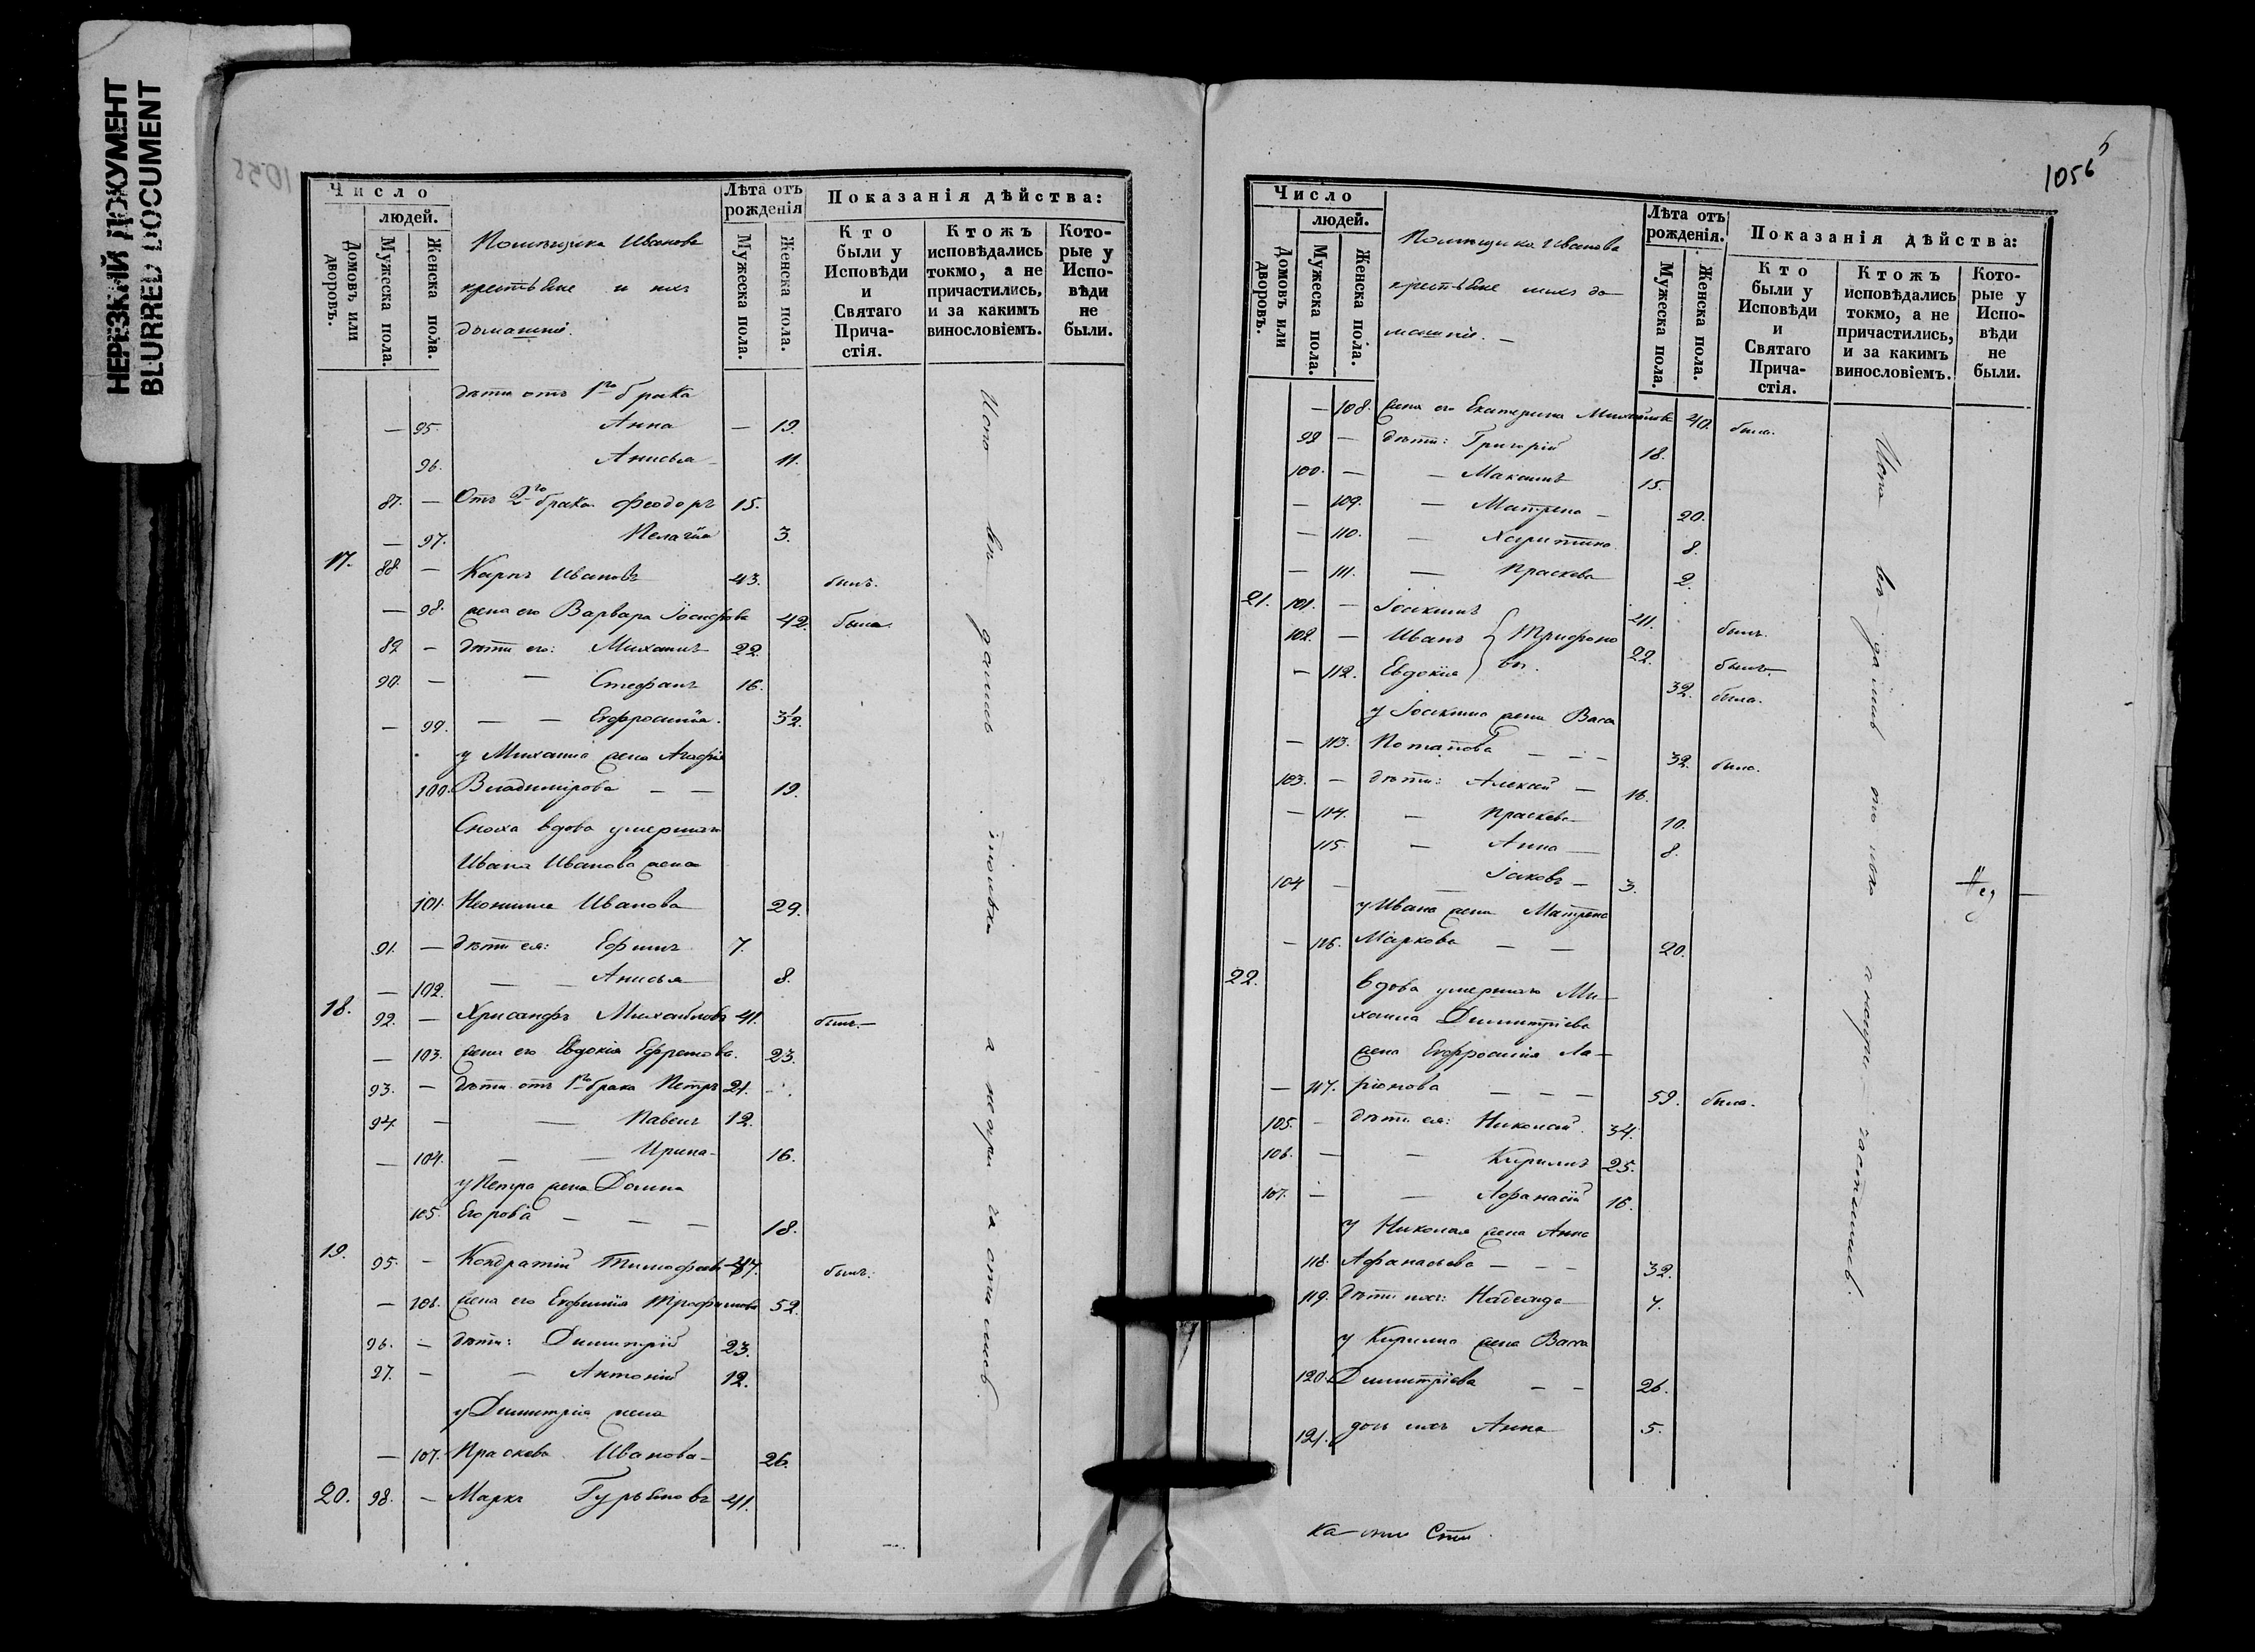 НЕРЕЗКИЙ ДОКУМЕНТ
BLURRED DOCUMENT
Число
людей.
Домовъ или дворовъ.
Мужеска пола.
Женска пола.
Помѣщика Иванова
крестьяне и ихъ
домашніе.
Лѣта отъ рожденія
Мужеска пола.
Женска пола.
Показанія дѣйства:
Кто были у Исповѣди и Святаго Причастія.
Ктожъ исповѣдались токмо, а не причастились, и за какимъ винословіемъ.
Которые у Исповѣди не были.
дѣти отъ 1го брака
— 95. Анна — 19.
96. Анисья — 11.
87. — Отъ 2го брака Феодоръ 15.
— 97. Пелагія 3.
17. 88. — Карпъ Ивановъ 43. былъ.
— 98. жена его Варвара Іосифова 42. была.
89 — дѣти его: Михаилъ 22.
90. — — Стефанъ 16.
— 99. — — Евфросинія. 3½.
у Михаила жена Агафія
100. Владимірова — — 19.
Сноха вдова умершаго
Ивана Иванова жена
101. Неонила Иванова 29.
91. — дѣти ея: Ефимъ 7.
— 102. — — Анисья 8.
18. 92. — Хрисанфъ Михайловъ 41. былъ.—
— 103. жена его Евдокія Ефремова. 23.
93. — дѣти отъ 1го брака Петръ 21.
94 — — Павелъ 12.
— 104. — — Ирина — 16.
у Петра жена Домна
105. Егорова — — — 18.
19. 95. — Кондратій Тимофеевъ 47. былъ.
— 106. жена его Евфимія Трофимова 52.
96. — дѣти: Димитрій 23.
97. — — Антоній 12.
у Димитрія жена
— 107. Праскева Иванова — 26.
20. 98. — Маркъ Гурьяновъ 41.
1056
Число
людей.
Домовъ или дворовъ.
Мужеска пола.
Женска пола.
Помѣщика Иванова
крестьяне и ихъ до-
машніе. —
Лѣта отъ рожденія.
Мужеска пола.
Женска пола.
Показанія дѣйства:
Кто были у Исповѣди и Святаго Причастія.
Ктожъ исповѣдались токмо, а не причастились, и за какимъ винословіемъ.
Которые у Исповѣди не были.
— 108. жена его Екатерина Михайлова 40. была.
99 — дѣти: Григорій 18.
100. — — Максимъ 15.
— 109. — Матрена — 20.
— 110. — Харитина. 8.
— 111. — Праскева 2.
21. 101. — Іоакимъ 41. былъ.
102. — Иванъ Трифоно 22. былъ.
— 112. Евдокія вы. 32. была.
у Іоакима жена Васса
— 113. Потапова — — — 32. была.
103. — дѣти: Алексій — 16.
— 114. — Праскева 10.
115. — Анна — 8.
104 — — Іаковъ — 3.
у Ивана жена Матрена
— 116. Маркова — — 20.
22. вдова умершаго Ми-
хаила Димитріева
жена Евфросинія Ла-
— 117. ріонова — — — 59. была.
105. — дѣти ея: Николай. 34.
106. — — Кирилъ 25.
107. — — Афанасій 16.
у Николая жена Анна
118. Афанасьева — — — 32.
119. дѣти ихъ: Надежда 7.
у Кирилла жена Васса
120. Димитріева — — 26.
121. дочь ихъ Анна 5.